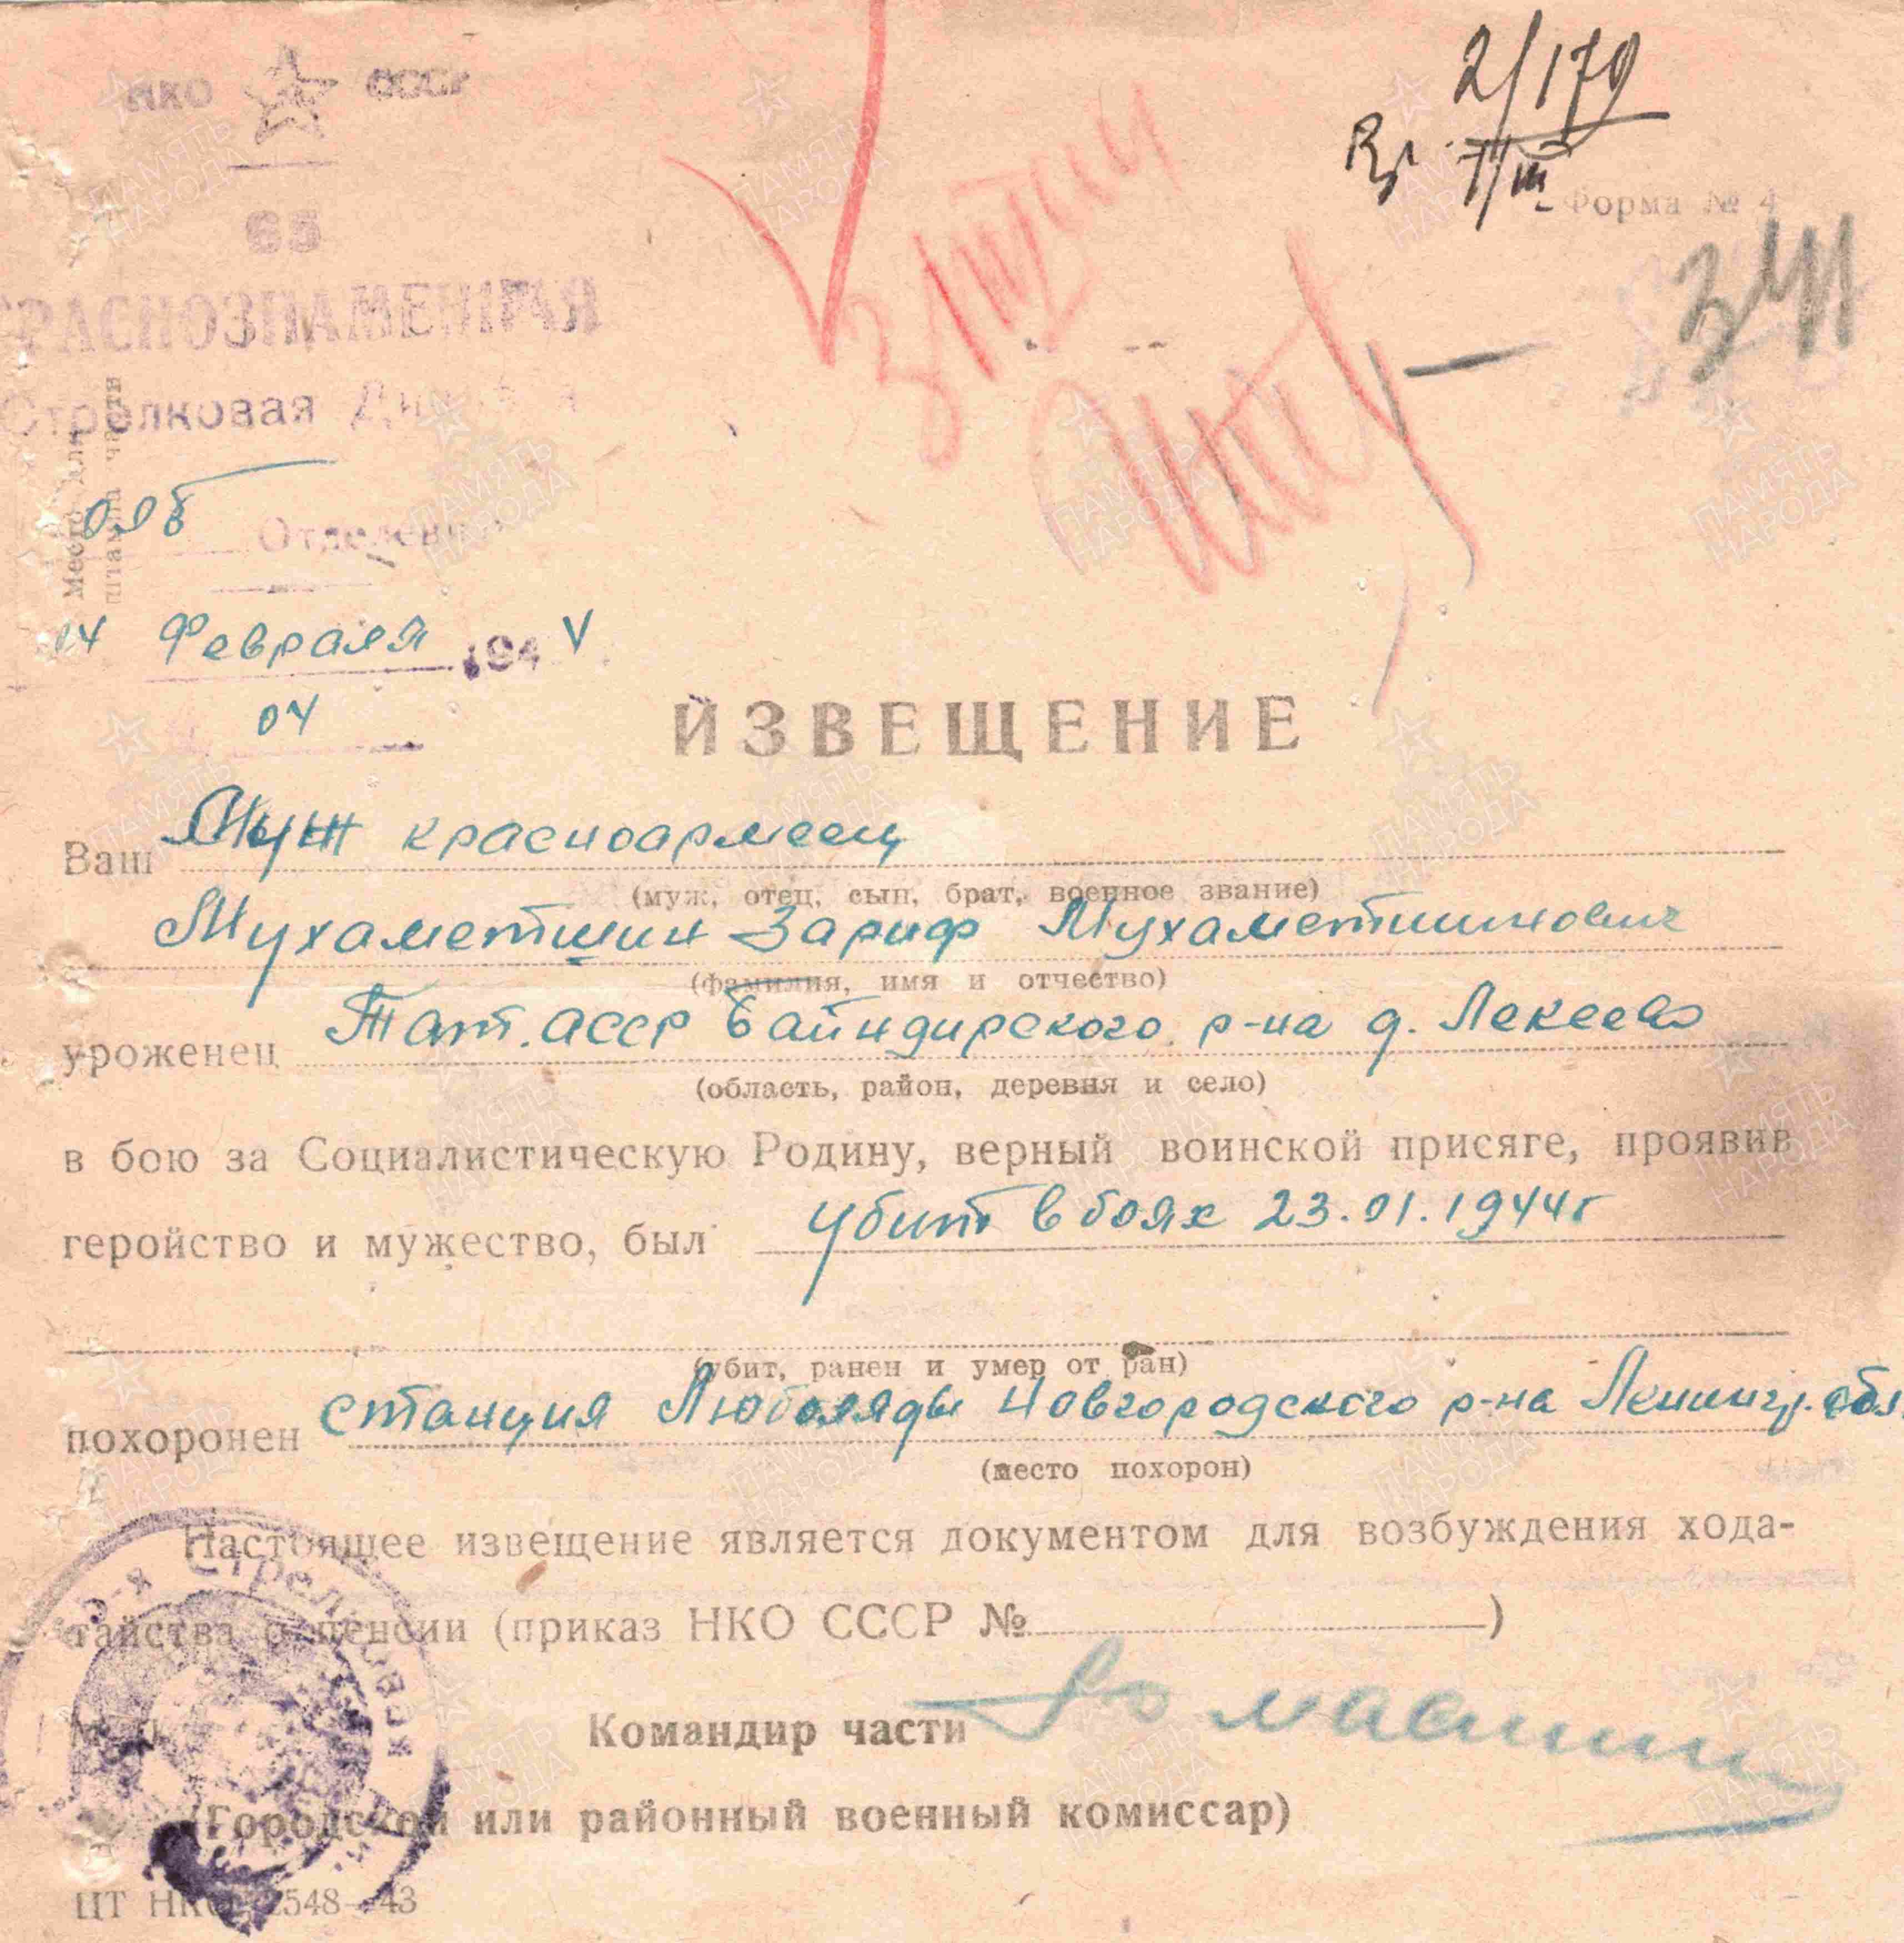 НКО СССР
2/179
7/III
Форма № 4
65
341
КРАСНОЗНАМЕННАЯ
Стрелковая
Место для
штампа части
Отделение
14 Февраля 194 V
04
ИЗВЕЩЕНИЕ
Ваш Муж красноармеец
(муж, отец, сын, брат, военное звание)
Мухаметшин Зариф Мухаметшинович
(фамилия, имя и отчество)
уроженец Тат. АССР Байндирского р-на д. Лекеево
(область, район, деревня и село)
в бою за Социалистическую Родину, верный воинской присяге, проявив
геройство и мужество, был убит в боях 23.01.1944г
(убит, ранен и умер от ран)
похоронен станция Люболяды Новгородского р-на Ленингр. обл
(место похорон)
Настоящее извещение является документом для возбуждения хода-
тайства о пенсии (приказ НКО СССР № )
Командир части
(Городской или районный военный комиссар)
ЦТ НКО 2548—43
ПАМЯТЬ
НАРОДА